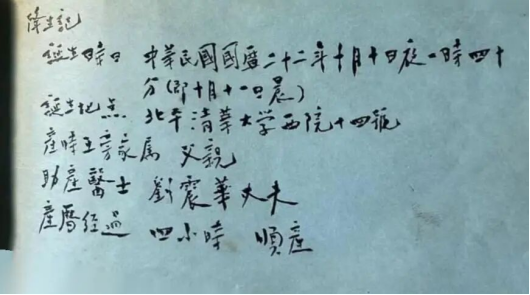 降生記
誕生時日 中華民國國曆二十二年十月十日夜一時四十
分(即十月十一日晨)
誕生地点 北平清華大学西院十四號
產時在旁家属 父親
助產醫士 劉震華大夫
產曆經過 四小時 順產